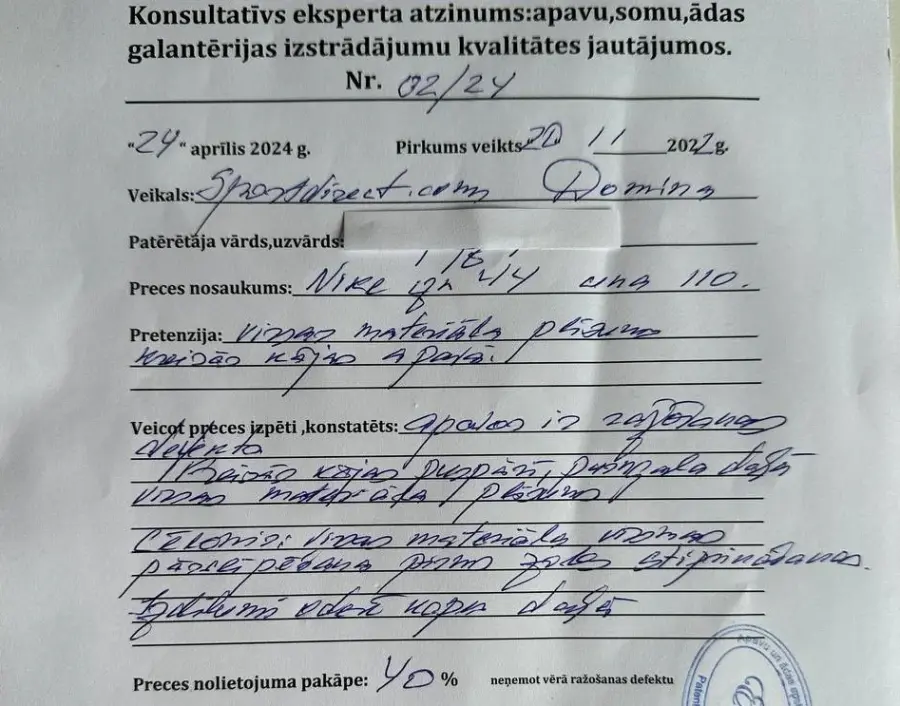 Konsultatīvs eksperta atzinums:apavu,somu,ādas
galantērijas izstrādājumu kvalitātes jautājumos.
Nr. 02/24
"24" aprīlis 2024 g. Pirkums veikts 20 11 2022 g.
Veikals: Sportdirect.com Domina
Patērētāja vārds,uzvārds:
Preces nosaukums: Nike izm 44 cena 110.
Pretenzija: virsas materiāla plīsums
kreisās kājas apavā.
Veicot preces izpēti ,konstatēts: apavos ir ražošanas
defekts
Kreisās kājas puspārī, purngala daļā
virsas materiāla plīsums
Cēlonis: virsas materiāla
pirms zoles stiprināšanas.
Izdilumi oderē kapes daļā
Preces nolietojuma pakāpe: 40 % neņemot vērā ražošanas defektu
Apavu un ādas